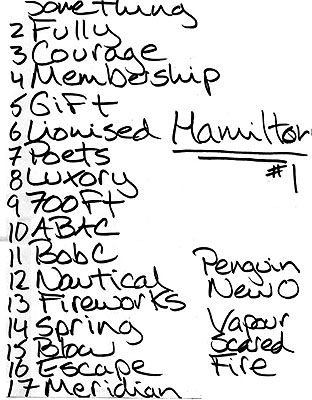 Something
2 Fully
3 Courage
4 Membership
5 Gift
6 Lionised
7 Poets
8 Luxory
9 700Ft
10 ABAC
11 BobC
12 Nautical
13 Fireworks
14 Spring
15 Blow
16 Escape
17 Meridian
Hamilton
#1
Penguin
New O
Vapour
Scared
Fire